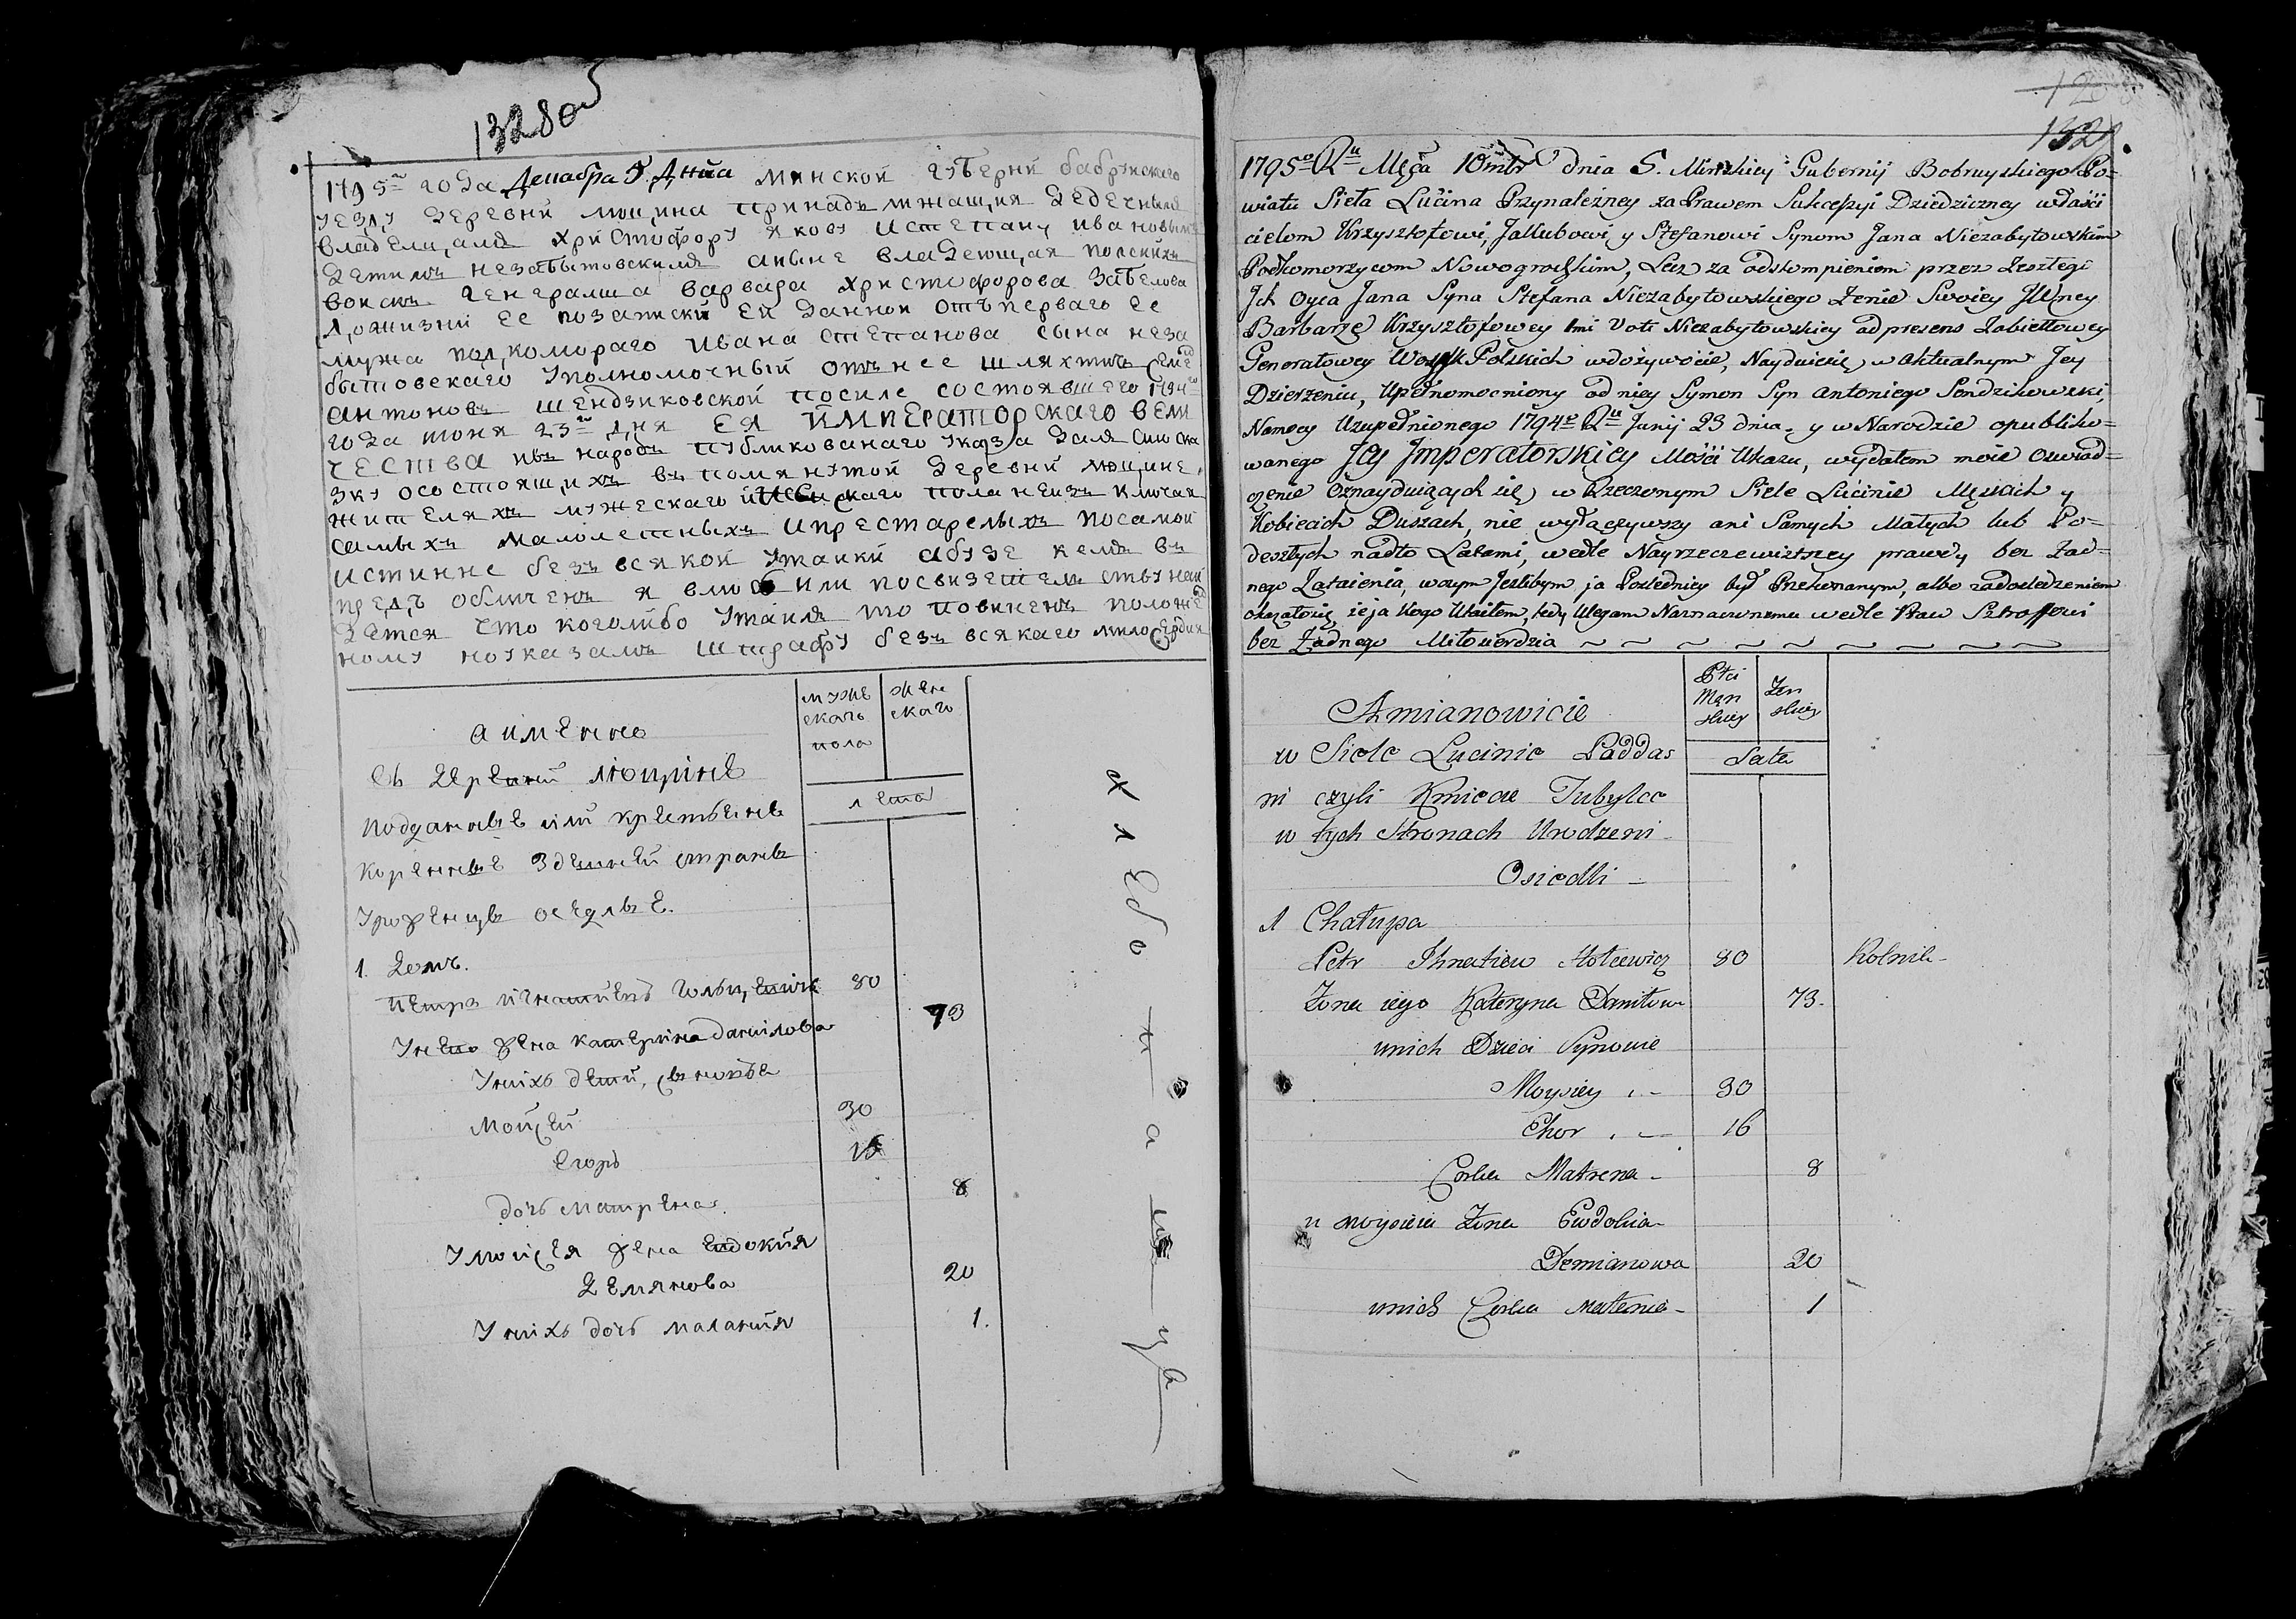 13280
1795 года Декабра 5. Дниа минской губерни бабруискаго
уезду деревни лющина принадълижащия дедечными
владелицами христофору якову истепану ивановымъ
детимъ незабытовскимъ аныне владеющая полскихъ
воискъ генералша варвара христофорова забелова
дожизни ее позаписки ей данной отъперваго ее
мужа подкомораго ивана степанова сына неза
бытовскаго уполномочный отънее шляхтичъ семе
антоновъ шендзиковской посиле состоявшего 1794
года июня 23го дня ЕЯ ИМПЕРАТОРСКАГО вели
чества ивъ народъ публикованаго указа даля сию ска
зку осостоящихъ въ помянутой деревни лющине
жителяхъ мужескаго и скаго пола неизъ ключая
самыхъ малолетныхъ ипрестарелыхъ посамой
истинне безъ всякой утайки абуде кемъ въ
предъ обличенъ я или посвидетельствунаи
детея что коголибо утаилъ то повиненъ полож
ному поуказамъ штрафу безъ всякаго милосердия
аименно
муже
скаго
пола
жен
скаго
въ деревни люцине
лета
подданные или крестьяне
коренные здешней страны
уроженцы оседлые.
1. домъ.
петръ игнатиевъ голцевичъ 80
унего жена катерина данилова 73
унихъ дети, сыновья
мойсей 30
егоръ 16
дочь матрена 8
умойсея жена евдокия
демянова 20
унихъ дочь малания 1.
хлебопашцы
132
1795º Ru Mca 10mbr dnia 5. Minskiey Gubernij Bobruyskiego Po-
wiatu Sieła Lucina Przynależney za Prawem Sukcessyi Dziedziczney właści
cielom Krzysztofowi, Jakubowi, y Stefanowi Synom Jana Niezabytowskim
Podkomorzycom Nowogrodzkim, Lecz za odstompieniem przez Zeszłego
Jch Oyca Jana Syna Stefana Niezabytowskiego Żenie Swoiey JWney
Barbarze Krzysztofowey 1mi Voti Niezabytowskiey ad presens Zabiełłowey
Generałowey Woysk Polskich wdożywocie, Nayduiącey w aktualnym Jey
Dzierżeniu, Upełnomocniony od niey Symon Syn Antoniego Sendzikowski,
Namocy Uzupełnionego 1794º Ru Junij 23 dnia y w Narodzie opubliko-
wanego Jey Jmperatorskiey Mości Ukazu, wydałem moie oświad-
czenie oznayduiących się w Rzeczonym Siele Lucinie Męskich y
Kobiecich Duszach, nie wyłączywszy ani Samych Małych lub Po-
deszłych nadto Latami, wedle Nayrzeczewistszey prawdy bez żad-
nego Zataienia, woczym Jeżelibym ja Posledniey był Przekonanym, albo zadosledzeniem
okazałosię, że ja kogo Utaiłem, tedy Ulegam Naznaczonemu wedle Praw Sztroffowi
bez Żadnego Miłosierdzia
Amianowicie
Płci
Męn
skiey
Żen
skiey
w Siele Lucinie Podda
Lata
ni czyli Kmiecie Tubylce
w tych Stronach Urodzeni
Osiedli
1 Chałupa
Petr Ihnatiew Holcewicz 80 Rolnik
Żona iego Kateryna Daniłowa 73.
unich Dzieci Synowie
Moysiey 30
Ehor 16
Corka Matrena 8
u Moysieia Żona Ewdokia
Demianowa 20
unich Corka Małania 1